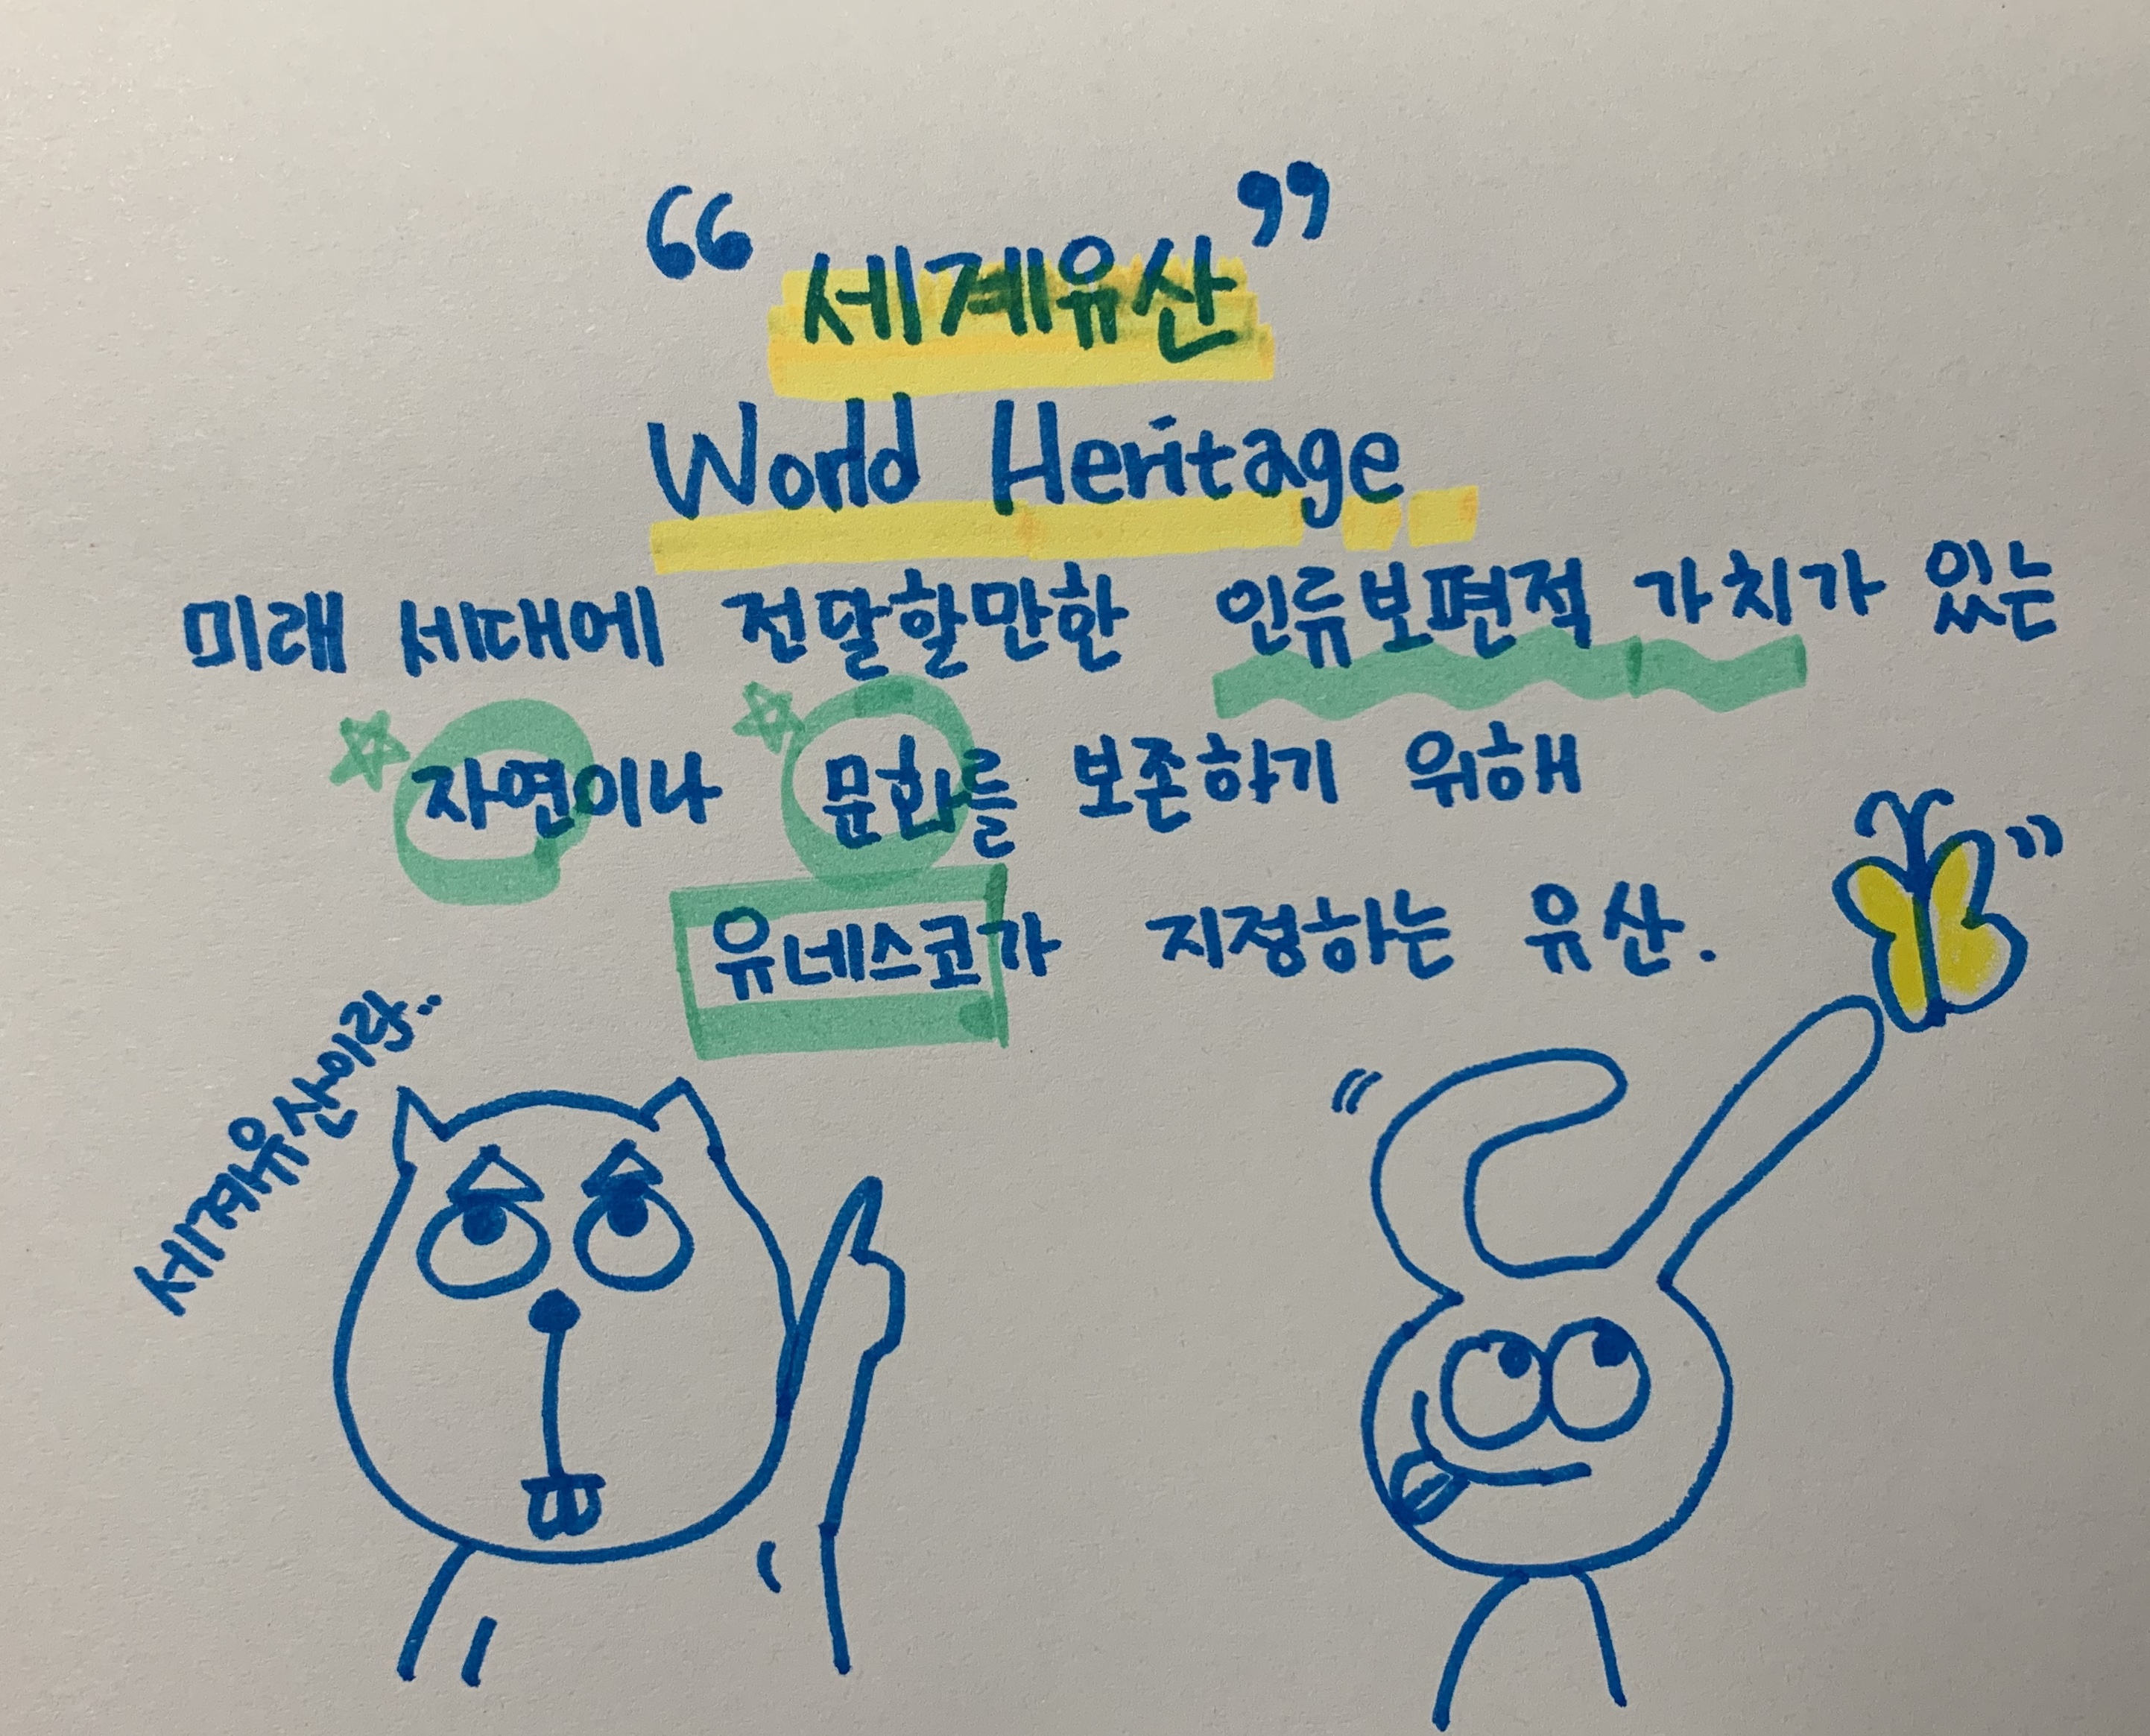 “세계유산”
World Heritage
미래 세대에 전달할만한 인류보편적 가치가 있는
자연이나 문화를 보존하기 위해
유네스코가 지정하는 유산.
세계유산이랑..